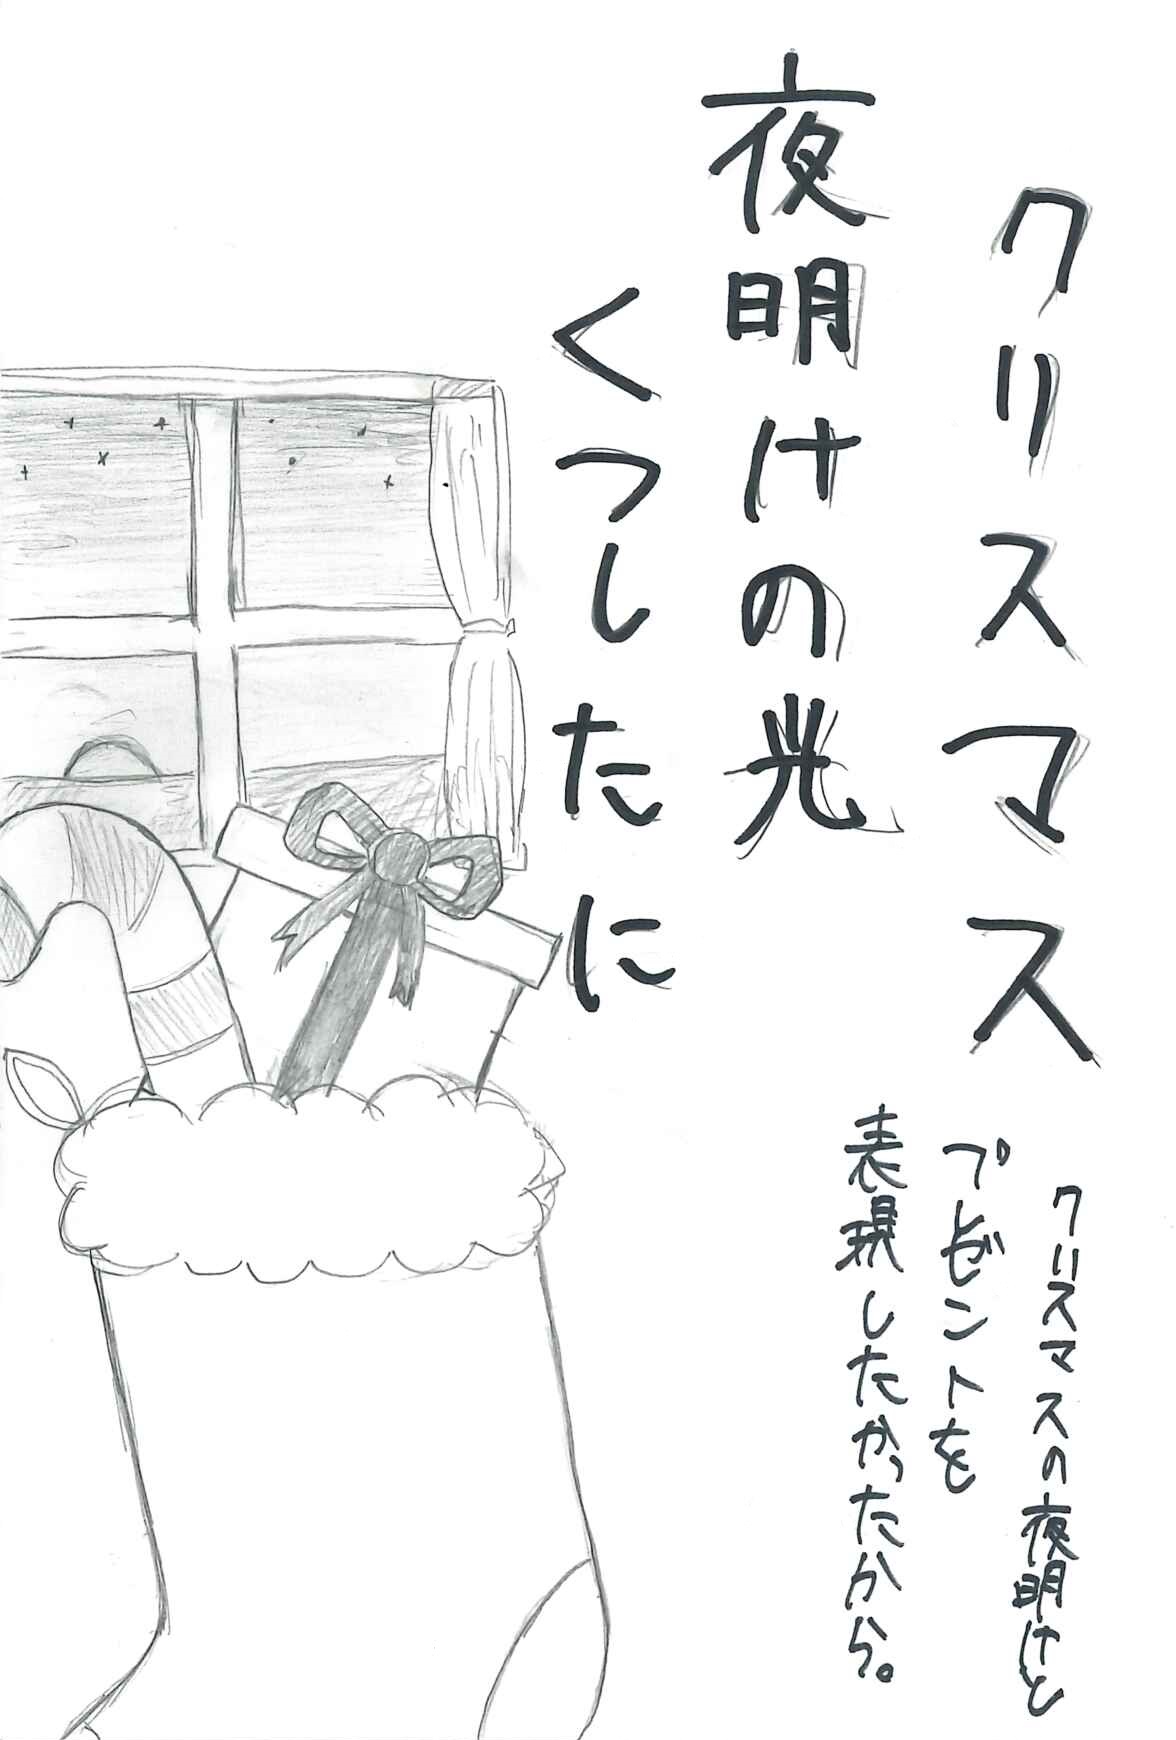 クリスマス
夜明けの光
くつしたに
クリスマスの夜明けと
プレゼントを
表現したかったから。